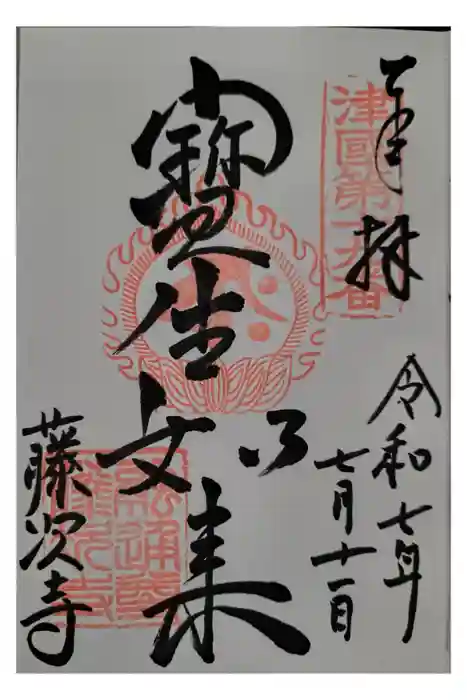 奉拝
津國第十九番
令和七年
七月十一日
寳生如来
藤次寺